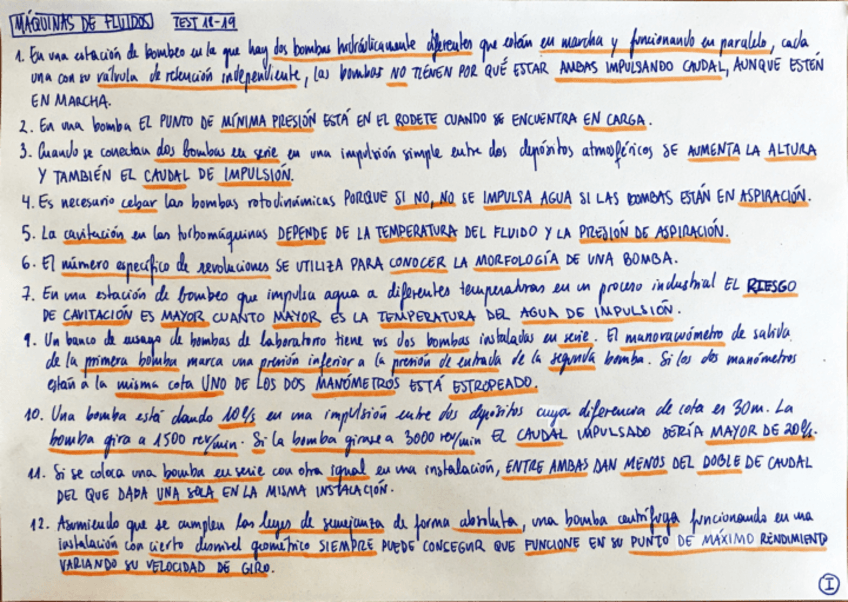 MÁQUINAS DE FLUIDOS TEST 18-19
1. En una estación de bombeo en la que hay dos bombas hidráulicamente diferentes que están en marcha y funcionando en paralelo, cada
una con su válvula de retención independiente, las bombas NO TIENEN POR QUÉ ESTAR AMBAS IMPULSANDO CAUDAL, AUNQUE ESTÉN
EN MARCHA.
2. En una bomba EL PUNTO DE MÍNIMA PRESIÓN ESTÁ EN EL RODETE CUANDO SE ENCUENTRA EN CARGA.
3. Cuando se conectan dos bombas en serie en una impulsión simple entre dos depósitos atmosféricos SE AUMENTA LA ALTURA
Y TAMBIÉN EL CAUDAL DE IMPULSIÓN.
4. Es necesario cebar las bombas rotodinámicas PORQUE SI NO, NO SE IMPULSA AGUA SI LAS BOMBAS ESTÁN EN ASPIRACIÓN.
5. La cavitación en las turbomáquinas DEPENDE DE LA TEMPERATURA DEL FLUIDO Y LA PRESIÓN DE ASPIRACIÓN.
6. El número específico de revoluciones SE UTILIZA PARA CONOCER LA MORFOLOGÍA DE UNA BOMBA.
7. En una estación de bombeo que impulsa agua a diferentes temperaturas en un proceso industrial EL RIESGO
DE CAVITACIÓN ES MAYOR CUANTO MAYOR ES LA TEMPERATURA DEL AGUA DE IMPULSIÓN.
9. Un banco de ensayo de bombas de laboratorio tiene sus dos bombas instaladas en serie. El manovacuómetro de salida
de la primera bomba marca una presión inferior a la presión de entrada de la segunda bomba. Si los dos manómetros
están a la misma cota UNO DE LOS DOS MANÓMETROS ESTÁ ESTROPEADO.
10. Una bomba está dando 10 l/s en una impulsión entre dos depósitos cuya diferencia de cota es 30m. La
bomba gira a 1500 rev/min. Si la bomba girase a 3000 rev/min EL CAUDAL IMPULSADO SERÍA MAYOR DE 20 l/s.
11. Si se coloca una bomba en serie con otra igual en una instalación, ENTRE AMBAS DAN MENOS DEL DOBLE DE CAUDAL
DEL QUE DABA UNA SOLA EN LA MISMA INSTALACIÓN.
12. Asumiendo que se cumplen las leyes de semejanza de forma absoluta, una bomba centrífuga funcionando en una
instalación con cierto desnivel geométrico SIEMPRE PUEDE CONSEGUIR QUE FUNCIONE EN SU PUNTO DE MÁXIMO RENDIMIENTO
VARIANDO SU VELOCIDAD DE GIRO.
I